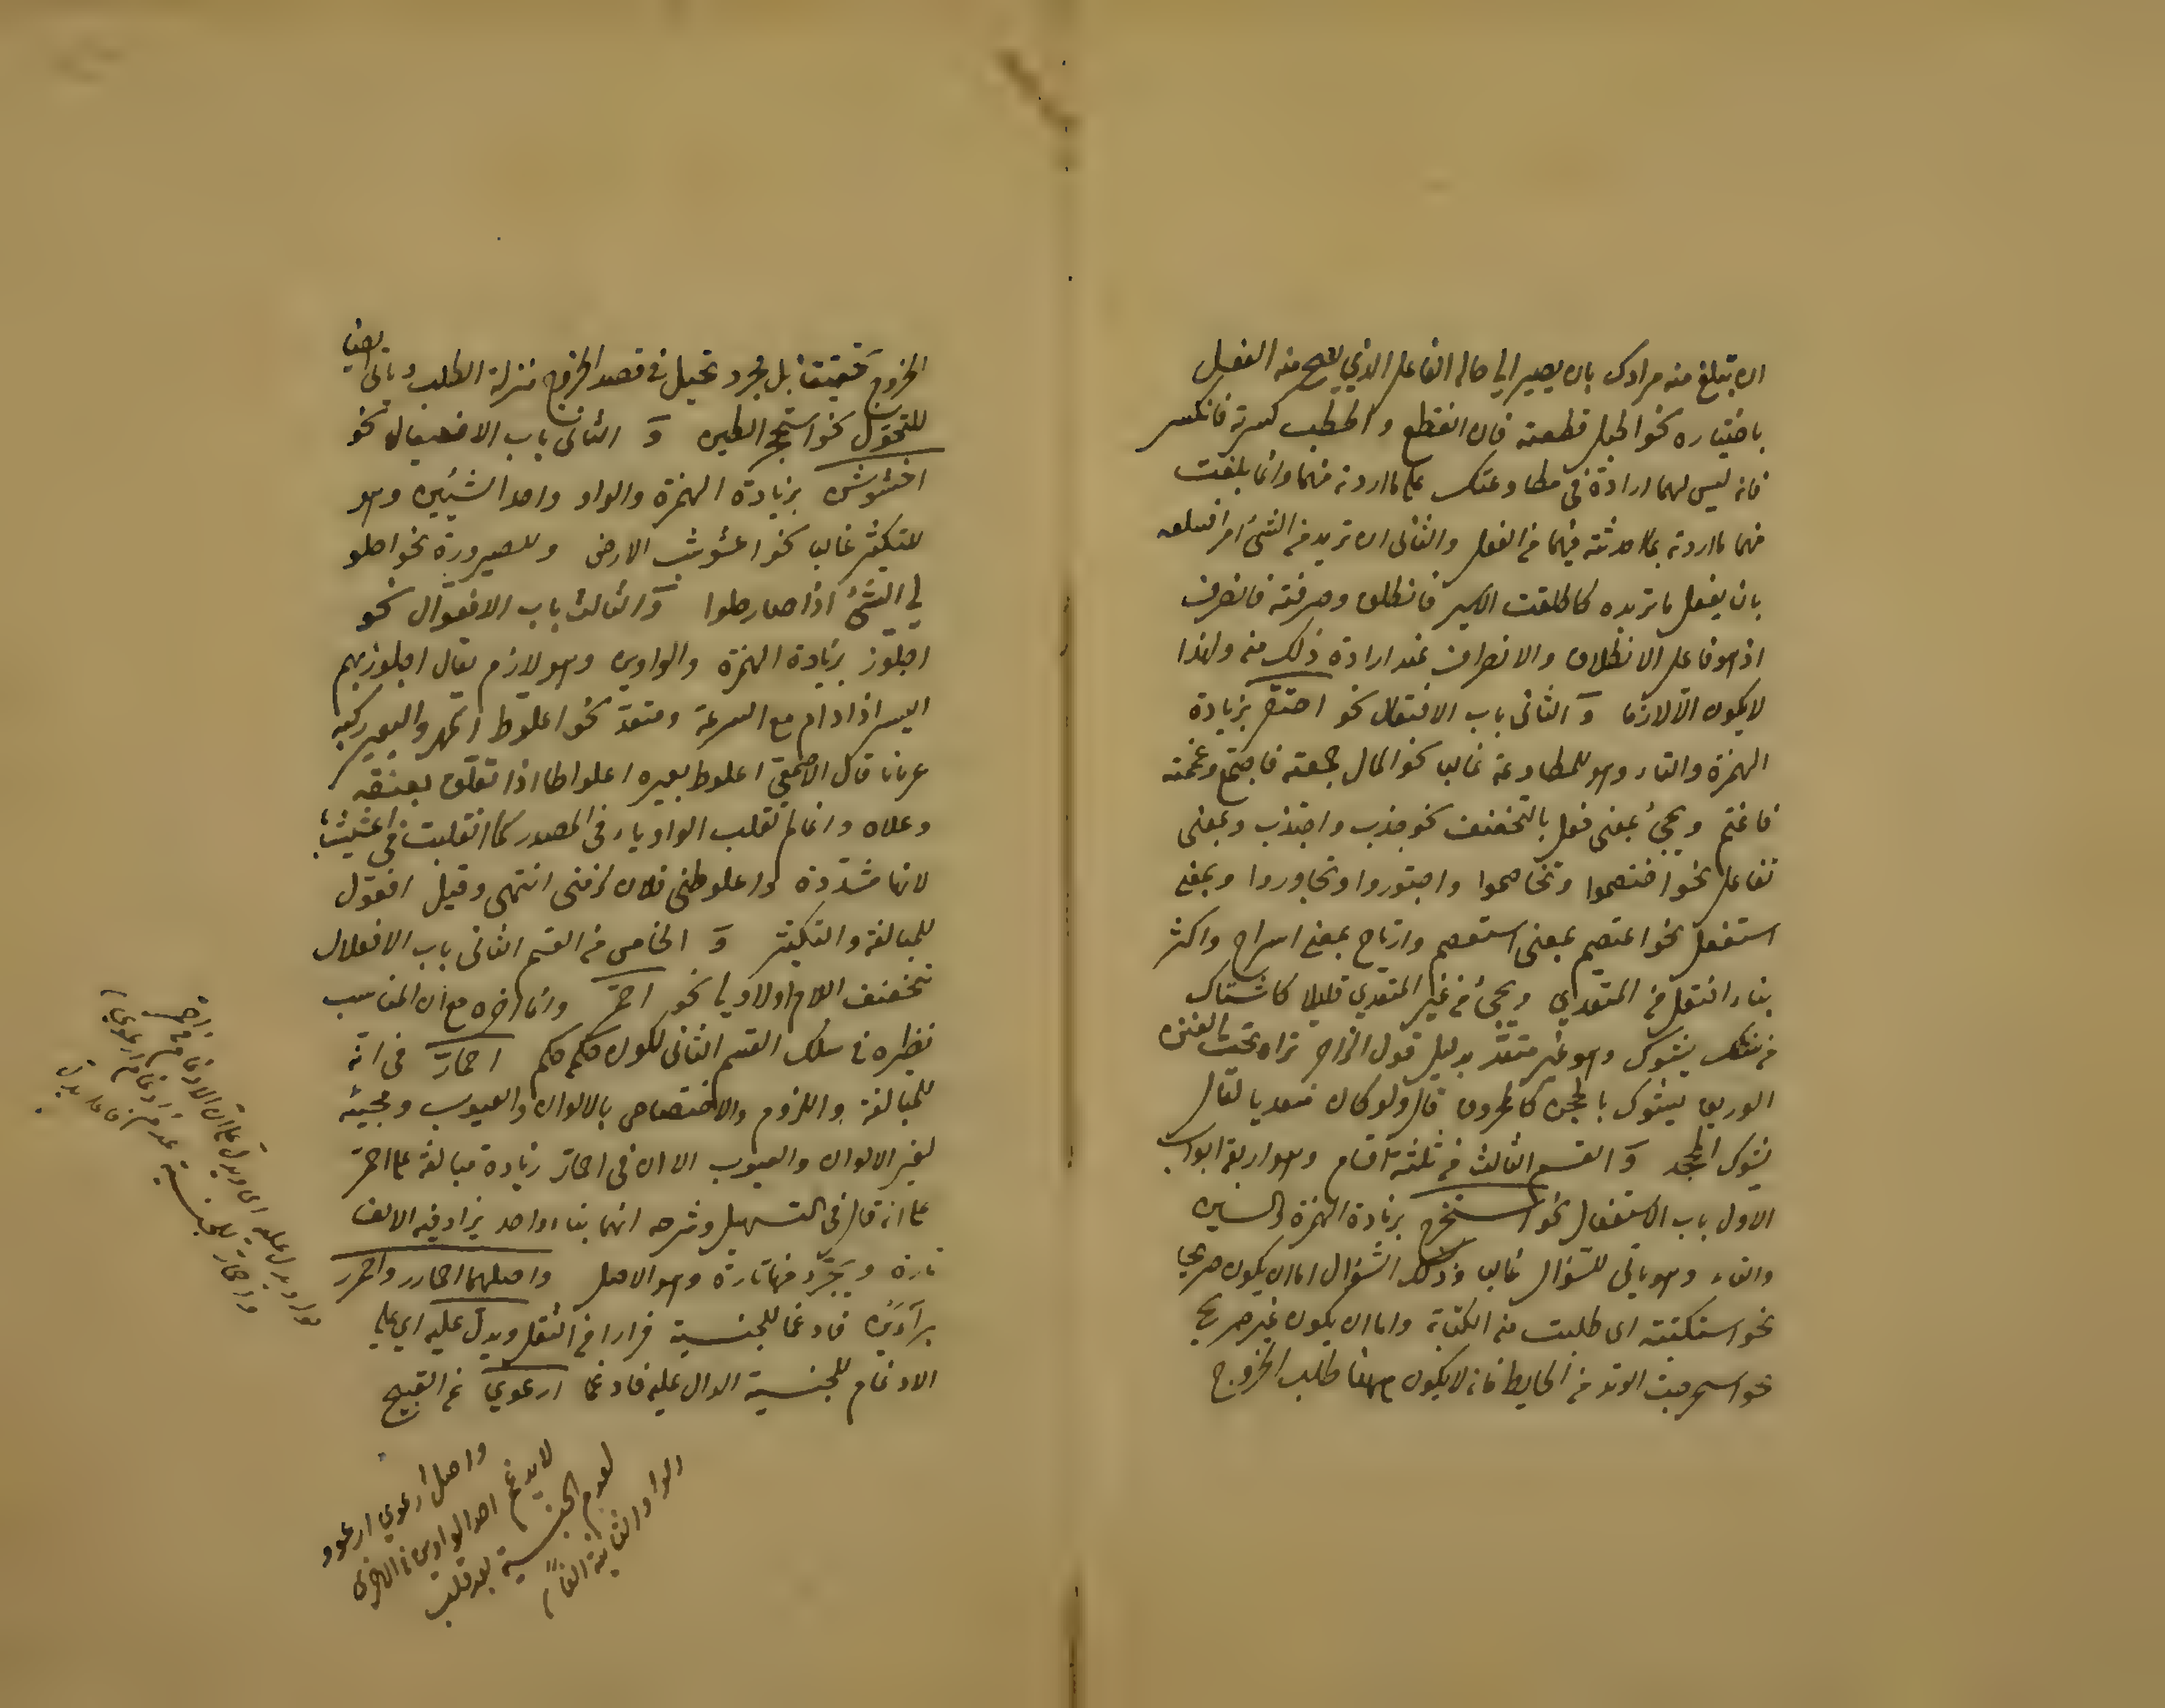 ان تبلغ منه مرادك بان يصير الى حال الفاعل الذي يصح منه الفعل
باختياره نحو الحبل قطعته فان انقطع والحطب كسرته فانكسر
فانه ليس لهما ارادة في مطاوعتك على ما اردته منهما وانما بلغت
منهما ما اردته بما احدثته فيهما من الفعل والثاني ان تريد من الشئ امرا
بان يفعل ما تريده كاطلقت الاسير فانطلق وصرفته فانصرف
اذ هو فاعل الانطلاق والانصراف عند ارادة ذلك منه ولهذا
لا يكون الا لازما و الثاني باب الافتعال نحو احتقر بزيادة
الهمزة والتاء وهو للمطاوعة غالبا نحو المال جمعته فاجتمع وغممته
فاغتم ويجئ بمعنى فعل بالتخفيف نحو جذب واجتذب وبمعنى
تفاعل نحو اختصموا وتخاصموا واجتوروا وتجاوروا وبمعنى
استفعل نحو اعتصم بمعنى استعصم وارتاح بمعنى استراح واكثر
بناء افتعل من المتعدي ويجئ من غير المتعدي قليلا كاشتاك
من يشوك وهو غير متعد بدليل قول الراجز تراه تحت الفنن
الوريق يشوك بالمحجن كالمحروق قال ولو كان متعديا لقال
يشوك المحجن و القسم الثالث من ثلثة اقسام وهو اربعة ابواب
الاول باب الاستفعال نحو استخرج بزيادة الهمزة والسين
والتاء وهو ياتي للسؤال غالبا وذلك السؤال اما ان يكون صريحا
نحو استكتبته اى طلبت منه الكتابة واما ان يكون غير صريح
نحو استخرجت الوتد من الحايط فانه لا يكون ههنا طلب الخروج
الخروج حقيقة بل مجرد تخيل في قصد الخروج منزلة الطلب وياتي ايضا
للتحول نحو استحجر الطين و الثاني باب الافعيعال نحو
اخشوشن بزيادة الهمزة والواو واحد الشينين وهو
للتكثير غالبا نحو اعشوشب الارض وللصيرورة نحو احلو
لي الشئ اذا صار حلوا و الثالث باب الافعوال نحو
اجلوز بزيادة الهمزة والواوين وهو لازم يقال اجلوز بهم
السير اذا دام مع السرعة ومتعد نحو اعلوط المهر والبعير ركبه
عريانا قال الاصمعي اعلوط بعيره اعلواطا اذا تعلق بعنقه
وعلاه وانما لم تقلب الواو ياء في المصدر كما انقلبت في اعشيشاب
لانها مشددة واعلوطني فلان لزمني انتهى وقيل افعول
للمبالغة والتكثير و الخامس من القسم الثاني باب الافعلال
بتخفيف اللام اولا نحو احمر وانما اخره مع ان المناسب
نظيره في سلك القسم الثاني لكون حكمه حكم احمار في انه
للمبالغة واللزوم والاختصاص بالالوان والعيوب ومجيئه
لغير الالوان والعيوب الا ان في احمار زيادة مبالغة على احمر
على انه قال في التسهيل وشرحه انهما بناء واحد يزاد فيه الالف
تارة ويجرد منها تارة وهو الاصل واصلهما احمارر واحمرر
برآءين فادغما للجنسية فرارا من الثقل ويدل عليه اي على
الادغام للجنسية الدال عليه فادغما ارعوى عن القبيح
واصل ارعوى ارعوو
لا يدغم احد الواوين في الاخرى
لعدم الجنسية بعد قلب
الواو الثانية الفا